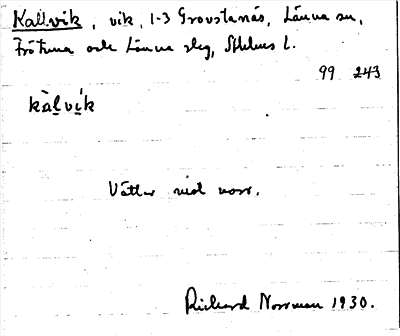 Kallvik, vik, 1-3 Grovstanäs, Länna sn,
Frötuna och Länna slg, Sthlms l.
99 243
kàlvík
Vätter mot norr.
Richard Norrman 1930.